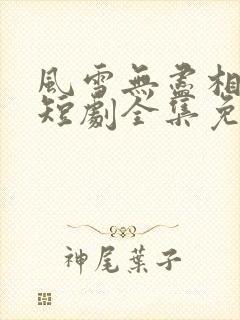 風雪無盡相
短劇全集免
神尾葉子